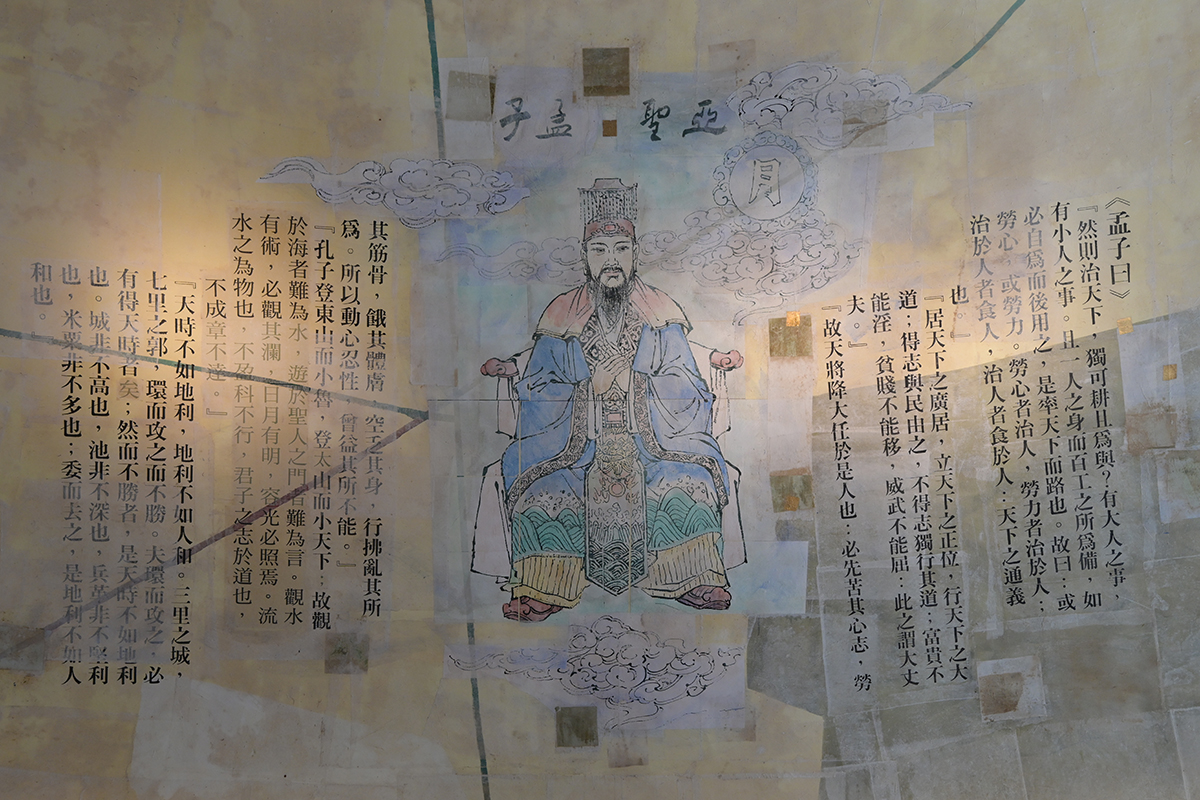 亞聖 孟子
月
《孟子曰》
『然則治天下，獨可耕且爲與？有大人之事，
有小人之事。且一人之身而百工之所爲備，如
必自爲而後用之，是率天下而路也。故曰：或
勞心，或勞力。勞心者治人，勞力者治於人；
治於人者食人，治人者食於人：天下之通義
也。』
『居天下之廣居，立天下之正位，行天下之大
道；得志與民由之，不得志獨行其道；富貴不
能淫，貧賤不能移，威武不能屈：此之謂大丈
夫。』
『故天將降大任於是人也：必先苦其心志，勞
其筋骨，餓其體膚，空乏其身，行拂亂其所
爲。所以動心忍性，曾益其所不能。』
『孔子登東山而小魯，登太山而小天下：故觀
於海者難為水，遊於聖人之門者難為言。觀水
有術，必觀其瀾，日月有明，容光必照焉。流
水之為物也，不盈科不行，君子之志於道也，
不成章不達。』
『天時不如地利，地利不如人和。三里之城，
七里之郭，環而攻之而不勝。夫環而攻之，必
有得天時者矣；然而不勝者，是天時不如地利
也。城非不高也，池非不深也，兵革非不堅利
也，米粟非不多也；委而去之，是地利不如人
和也。』